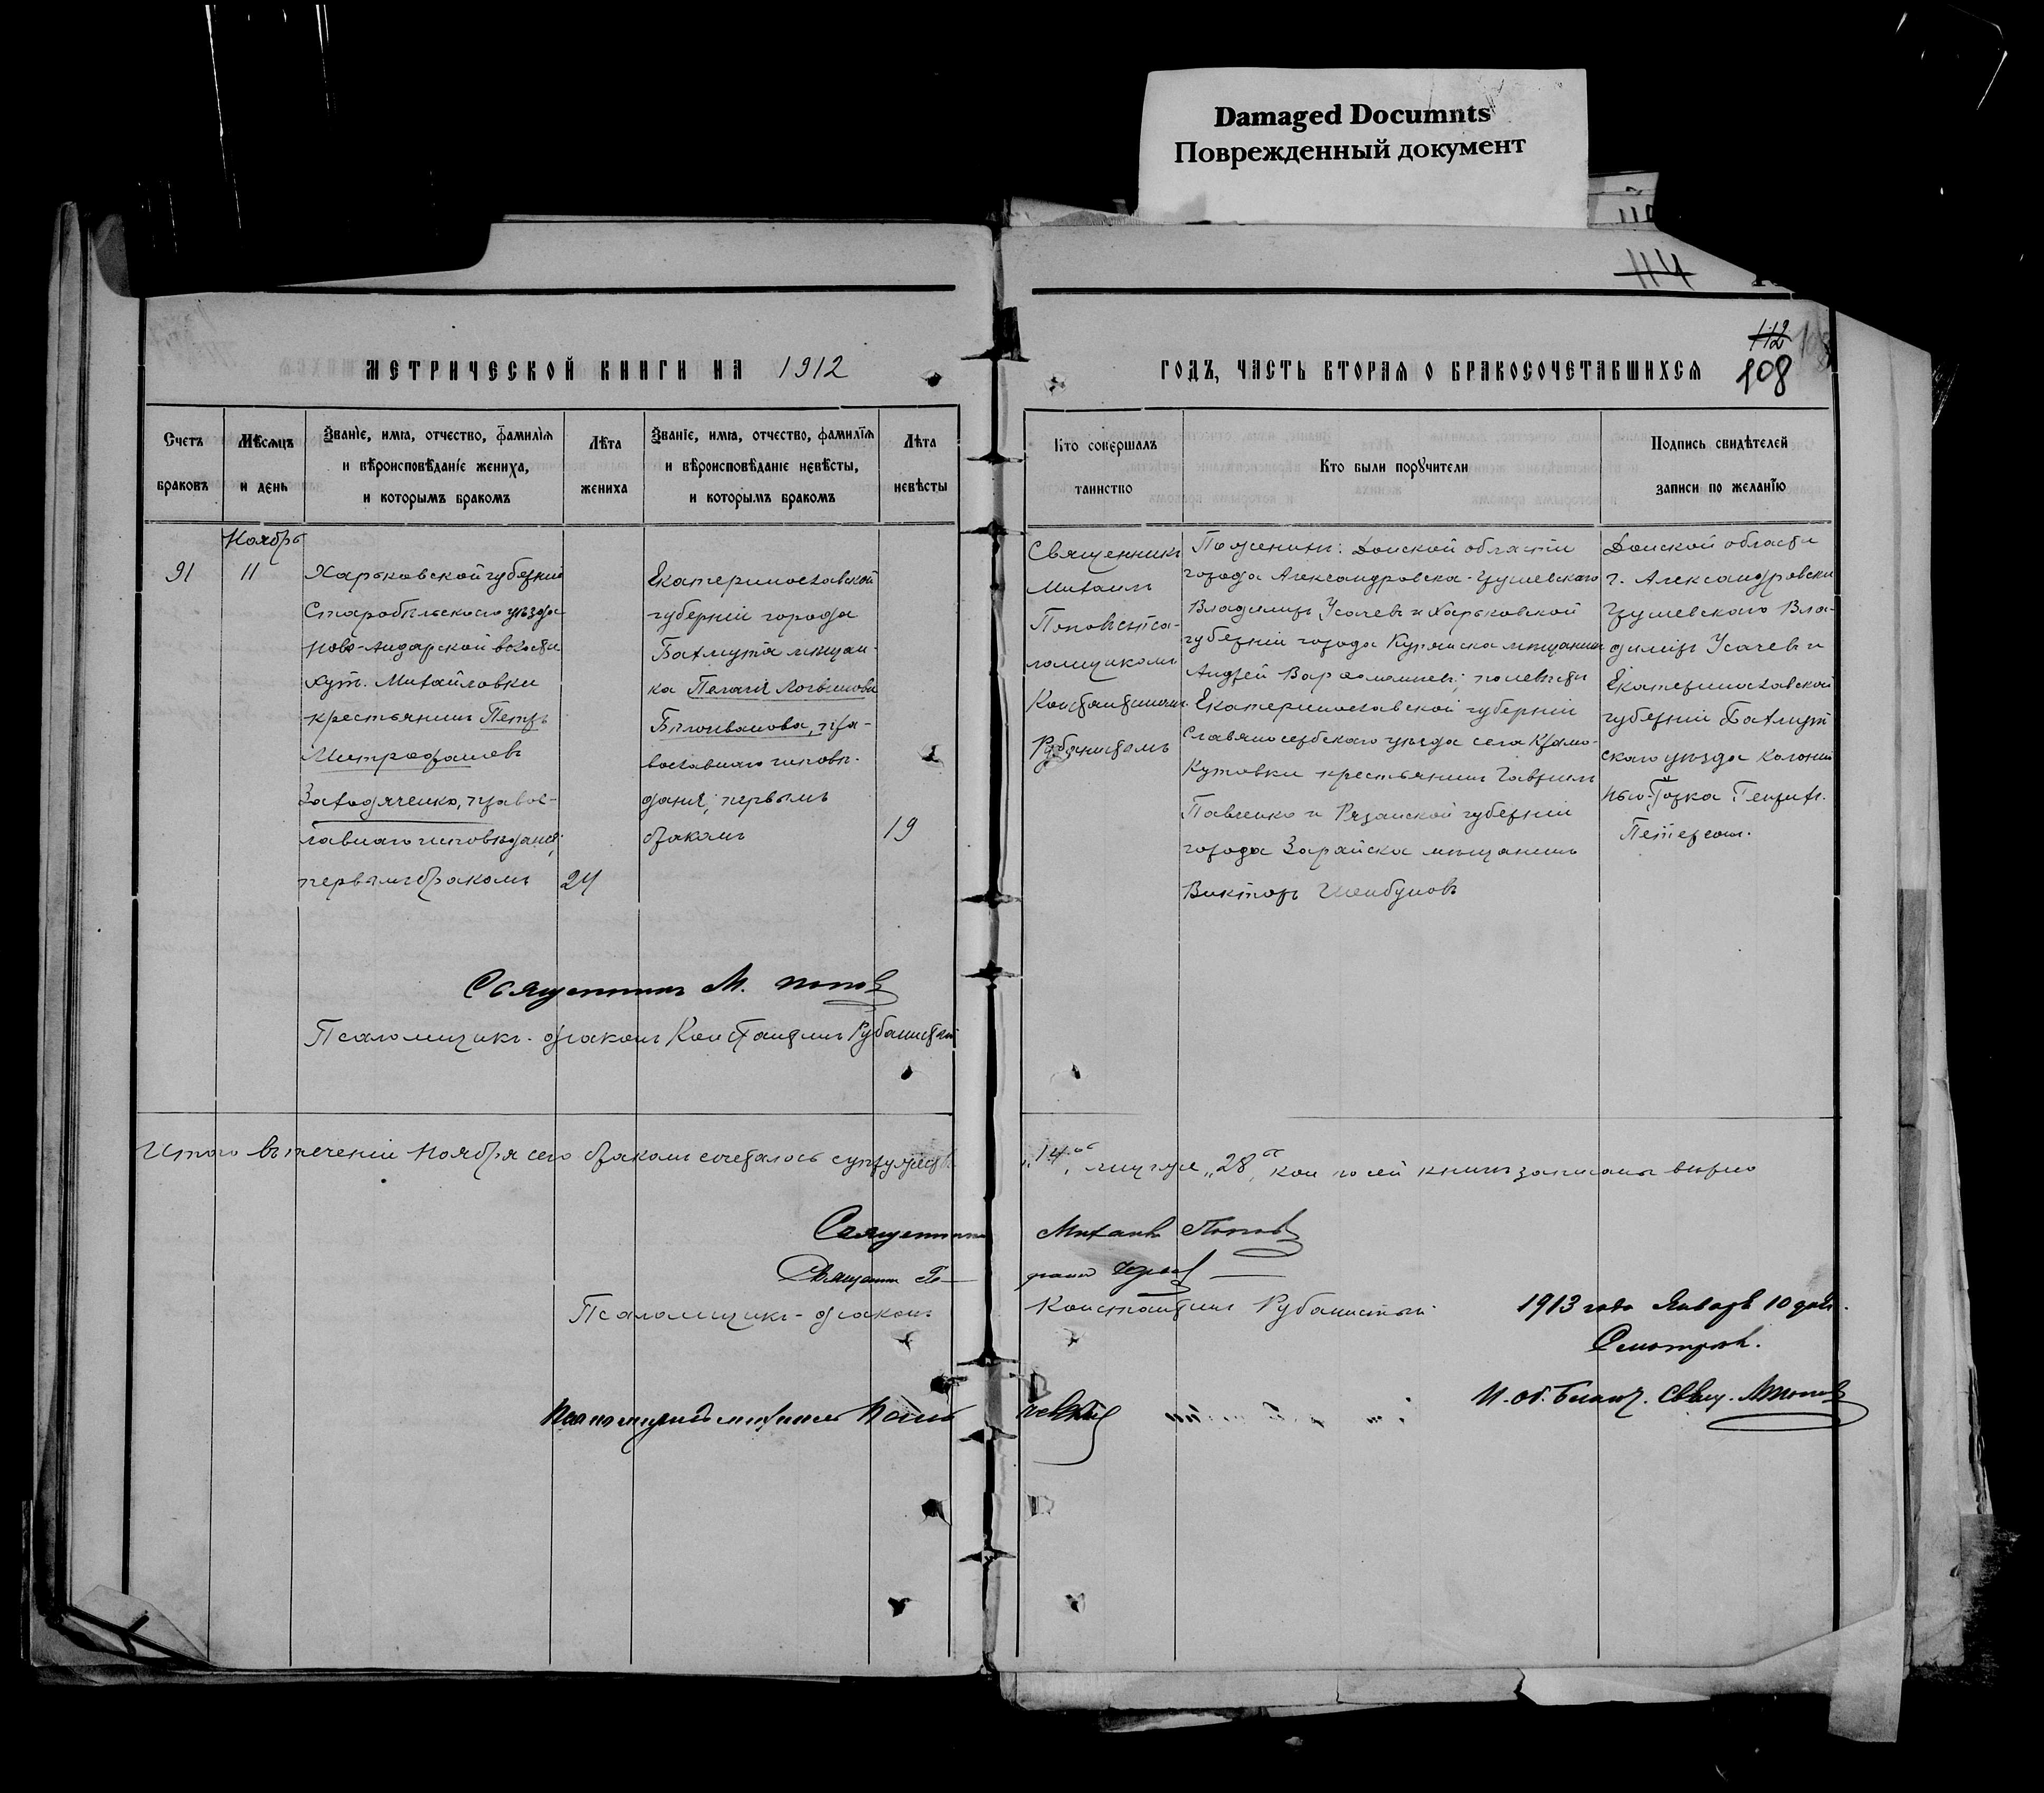 Damaged Documnts
Поврежденный документ
114
112
108
МЕТРИЧЕСКОЙ КНИГИ НА 1912
ГОДЪ, ЧАСТЬ ВТОРАЯ О БРАКОСОЧЕТАВШИХСЯ
Счетъ браковъ
Мѣсяцъ и день
Званіе, имя, отчество, фамилія и вѣроисповѣданіе жениха, и которымъ бракомъ
Лѣта жениха
Званіе, имя, отчество, фамилія и вѣроисповѣданіе невѣсты, и которымъ бракомъ
Лѣта невѣсты
Кто совершалъ таинство
Кто были поручители
Подпись свидѣтелей записи по желанію
Ноябрь
91
11
Харьковской губерніи
Старобѣльскаго уѣзда
Ново-Айдарской волости
хут. Михайловки
крестьянинъ Петръ
Митрофановъ
Заходяченко, правос-
лавнаго исповѣданія,
первымъ бракомъ
24
Екатеринославской
губерніи города
Бахмута мѣщан-
ка Пелагія Логвинова
Бѣлоиванова, пра-
вославнаго исповѣ-
данія, первымъ
бракомъ
19
Священникъ
Михаилъ
Поповъ съ пса-
ломщикомъ
Константиномъ
Рубанистымъ
По женихѣ: Донской области
города Александровска-Грушевскаго
Владимиръ Усачевъ и Харьковской
губерніи города Купянска мѣщанинъ
Андрей Варѳоломеевъ; по невѣстѣ
Екатеринославской губерніи
Славяносербскаго уѣзда села Крымо-
Кутовки крестьянинъ Гавріилъ
Павленко и Рязанской губерніи
города Зарайска мѣщанинъ
Викторъ
Донской области
г. Александровска
Грушевскаго Вла-
димиръ Усачевъ и
Екатеринославской
губерніи Бахмут
скаго уѣзда колоніи
Нью-Іорка Генрихъ
Петерсонъ.
Священникъ М. Поповъ
Псаломщикъ-діаконъ Константинъ Рубанистый
Итого въ теченіи Ноября сего бракомъ сочеталось супружествъ „14", лицъ же „28", кои по сей книгѣ записаны вѣрно
Священникъ Михаилъ Поповъ
Священникъ
Псаломщикъ-діаконъ Константинъ Рубанистый
1913 года Января 10 дня.
Смотрѣлъ.
И. об. Благоч. Свящ. М Поповъ